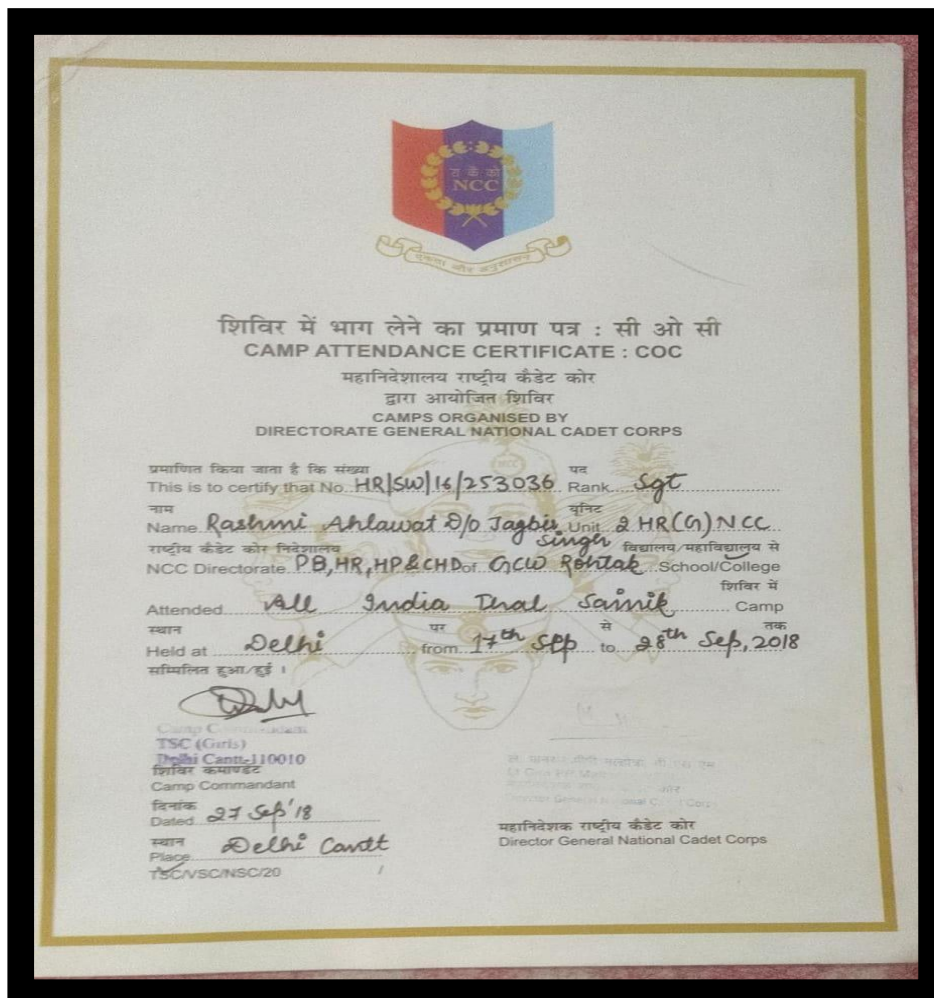 रा कै को
NCC
एकता और अनुशासन
शिविर में भाग लेने का प्रमाण पत्र : सी ओ सी
CAMP ATTENDANCE CERTIFICATE : COC
महानिदेशालय राष्ट्रीय कैडेट कोर
द्वारा आयोजित शिविर
CAMPS ORGANISED BY
DIRECTORATE GENERAL NATIONAL CADET CORPS
प्रमाणित किया जाता है कि संख्या पद
This is to certify that No. HR/SW/16/253036 Rank Sgt
नाम यूनिट
Name Rashmi Ahlawat D/o Jagbir Singh Unit 2 HR(G) NCC
राष्ट्रीय कैडेट कोर निदेशालय विद्यालय/महाविद्यालय से
NCC Directorate PB, HR, HP & CHD of GCW Rohtak School/College
शिविर में
Attended All India Thal Sainik Camp
स्थान पर से तक
Held at Delhi from 17th Sep to 28th Sep, 2018
सम्मिलित हुआ/हुई ।
Camp Commandant
TSC (Girls)
Delhi Cantt-110010
शिविर कमाण्डेंट
Camp Commandant
दिनांक
Dated 27 Sep'18
स्थान
Place Delhi Cantt
TSC/VSC/NSC/20 /
Director General National C Corps
महानिदेशक राष्ट्रीय कैडेट कोर
Director General National Cadet Corps